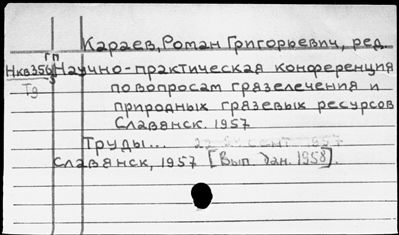 Караев, Роман Григорьевич, ред.
гп
Нкв3565 Научно-практическая конференция
Тд по вопросам грязелечения и
природных грязевых ресурсов
Славянск. 1957
Труды... 1957
Славянск, 1957 [Вып. дан. 1958].